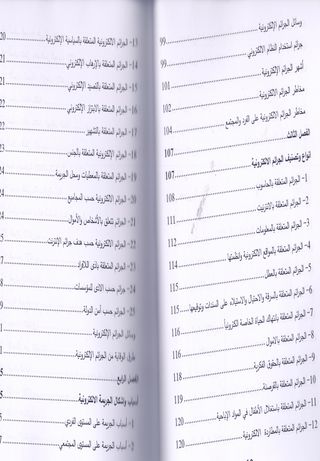 وسائل الجرائم الالكترونية 99
جرائم استخدام النظام الالكتروني 99
أشهر الجرائم الإلكترونية 101
مخاطر الجرائم الالكترونية 102
مخاطر الجرائم الالكترونية على الفرد والمجتمع 104
الفصل الثالث 107
انواع وتصنيف الجرائم الالكترونية 107
1- الجرائم المتعلقة بالحاسوب 108
2- الجرائم المتعلقة بالانترنيت 111
3- الجرائم المتعلقة بالمعلومات 112
4- الجرائم المتعلقة بالمواقع الالكترونية وانظمتها 114
5- الجرائم المتعلقة بالعطل 115
6- الجرائم المتعلقة بالسرقة والاحتيال والاستيلاء على السندات وتوقيعها 115
7- الجرائم المتعلقة بانتهاك الحياة الخاصة الكترونيا 116
8- الجرائم المتعلقة بالاموال 116
9- الجرائم المتعلقة بالحقوق الفكرية 118
10- الجرائم المتعلقة بالقرصنة 119
11- الجرائم المتعلقة باستغلال الأطفال في المواد الإباحية 120
12- الجرائم المتعلقة بالمطاردة الالكترونية 120
13- الجرائم الالكترونية المتعلقة بالسياسية الإلكترونية 20
14- الجرائم المتعلقة بالإرهاب الإلكتروني 21
15- الجرائم المتعلقة بالتصيد الإلكتروني
16- الجرائم المتعلقة بالابتزاز الإلكتروني
17- الجرائم المتعلقة بالتشهير
18- الجرائم المتعلقة بالجنس
19- الجرائم المتعلقة بالمعطيات ومحل الجريمة
20- الجرائم الالكترونية حسب المجاميع
21- الجرائم تتعلق بالأشخاص والأموال
22- الجرائم الالكترونية حسب هدف جرائم الإنترنت
23- الجرائم المتعلقة بأذى الافراد
24- جرائم حسب الاذى للمؤسسات
25- الجرائم حسب أمن الدولة
وسائل الجرائم الإلكترونية
طرق الوقاية من الجرائم الإلكترونية
الفصل الرابع
أسباب واشكال الجريمة الالكترونية
1- أسباب الجريمة على المستوى الفردي
2- أسباب الجريمة على المستوى المجتمعي